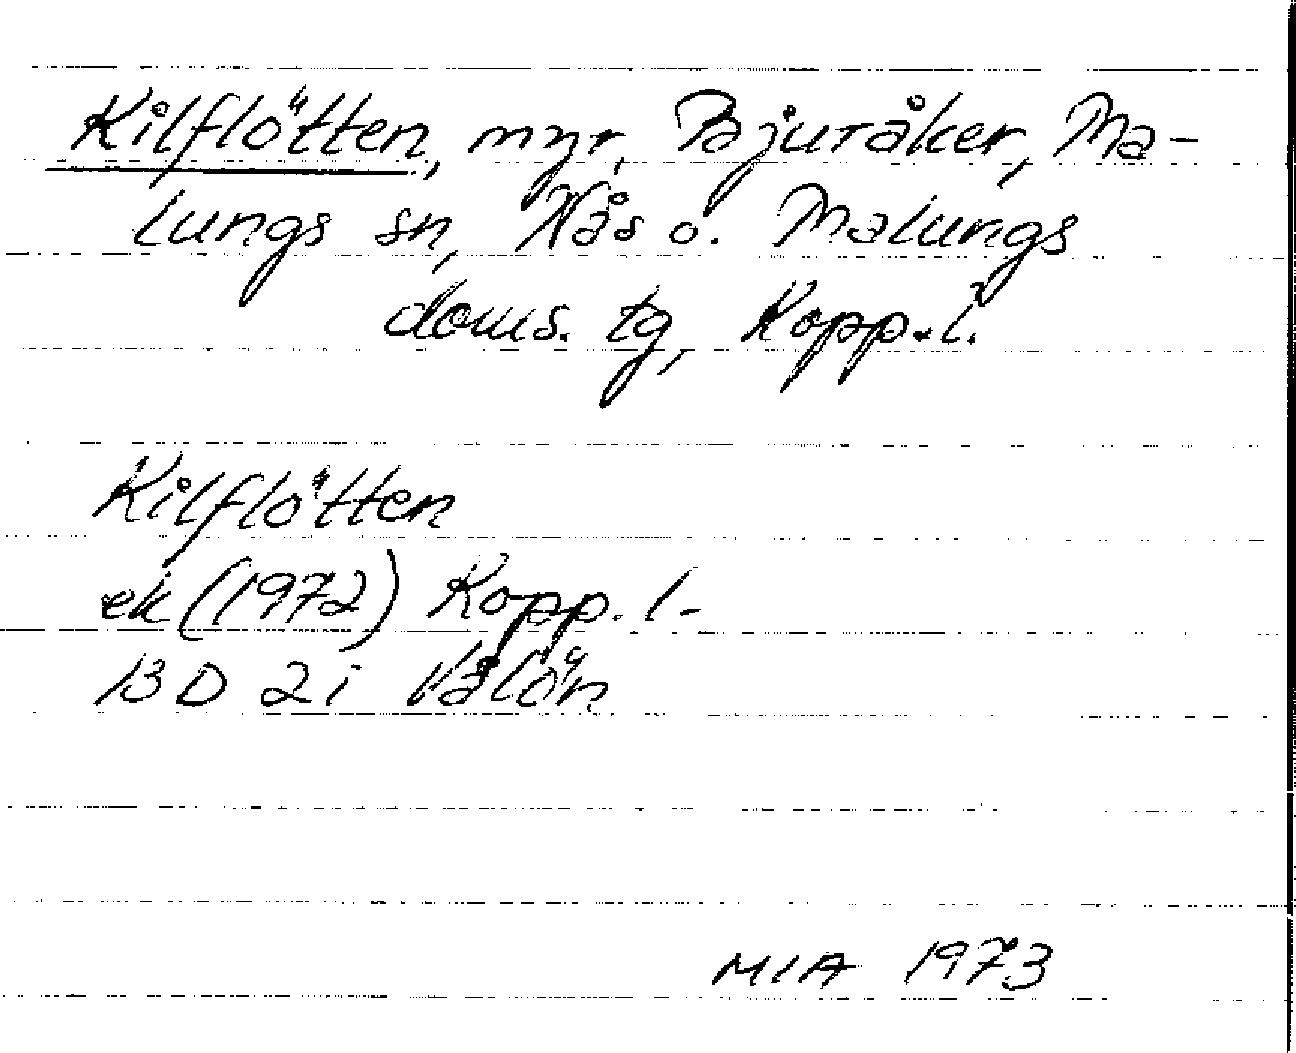 Kilflötten, myr, Bjuråker, Ma-
lungs sn, Nås o. Malungs
doms. tg, Kopp. l.
Kilflötten
ek (1972) Kopp. l.
13 D 2i Vålön
MIA 1973